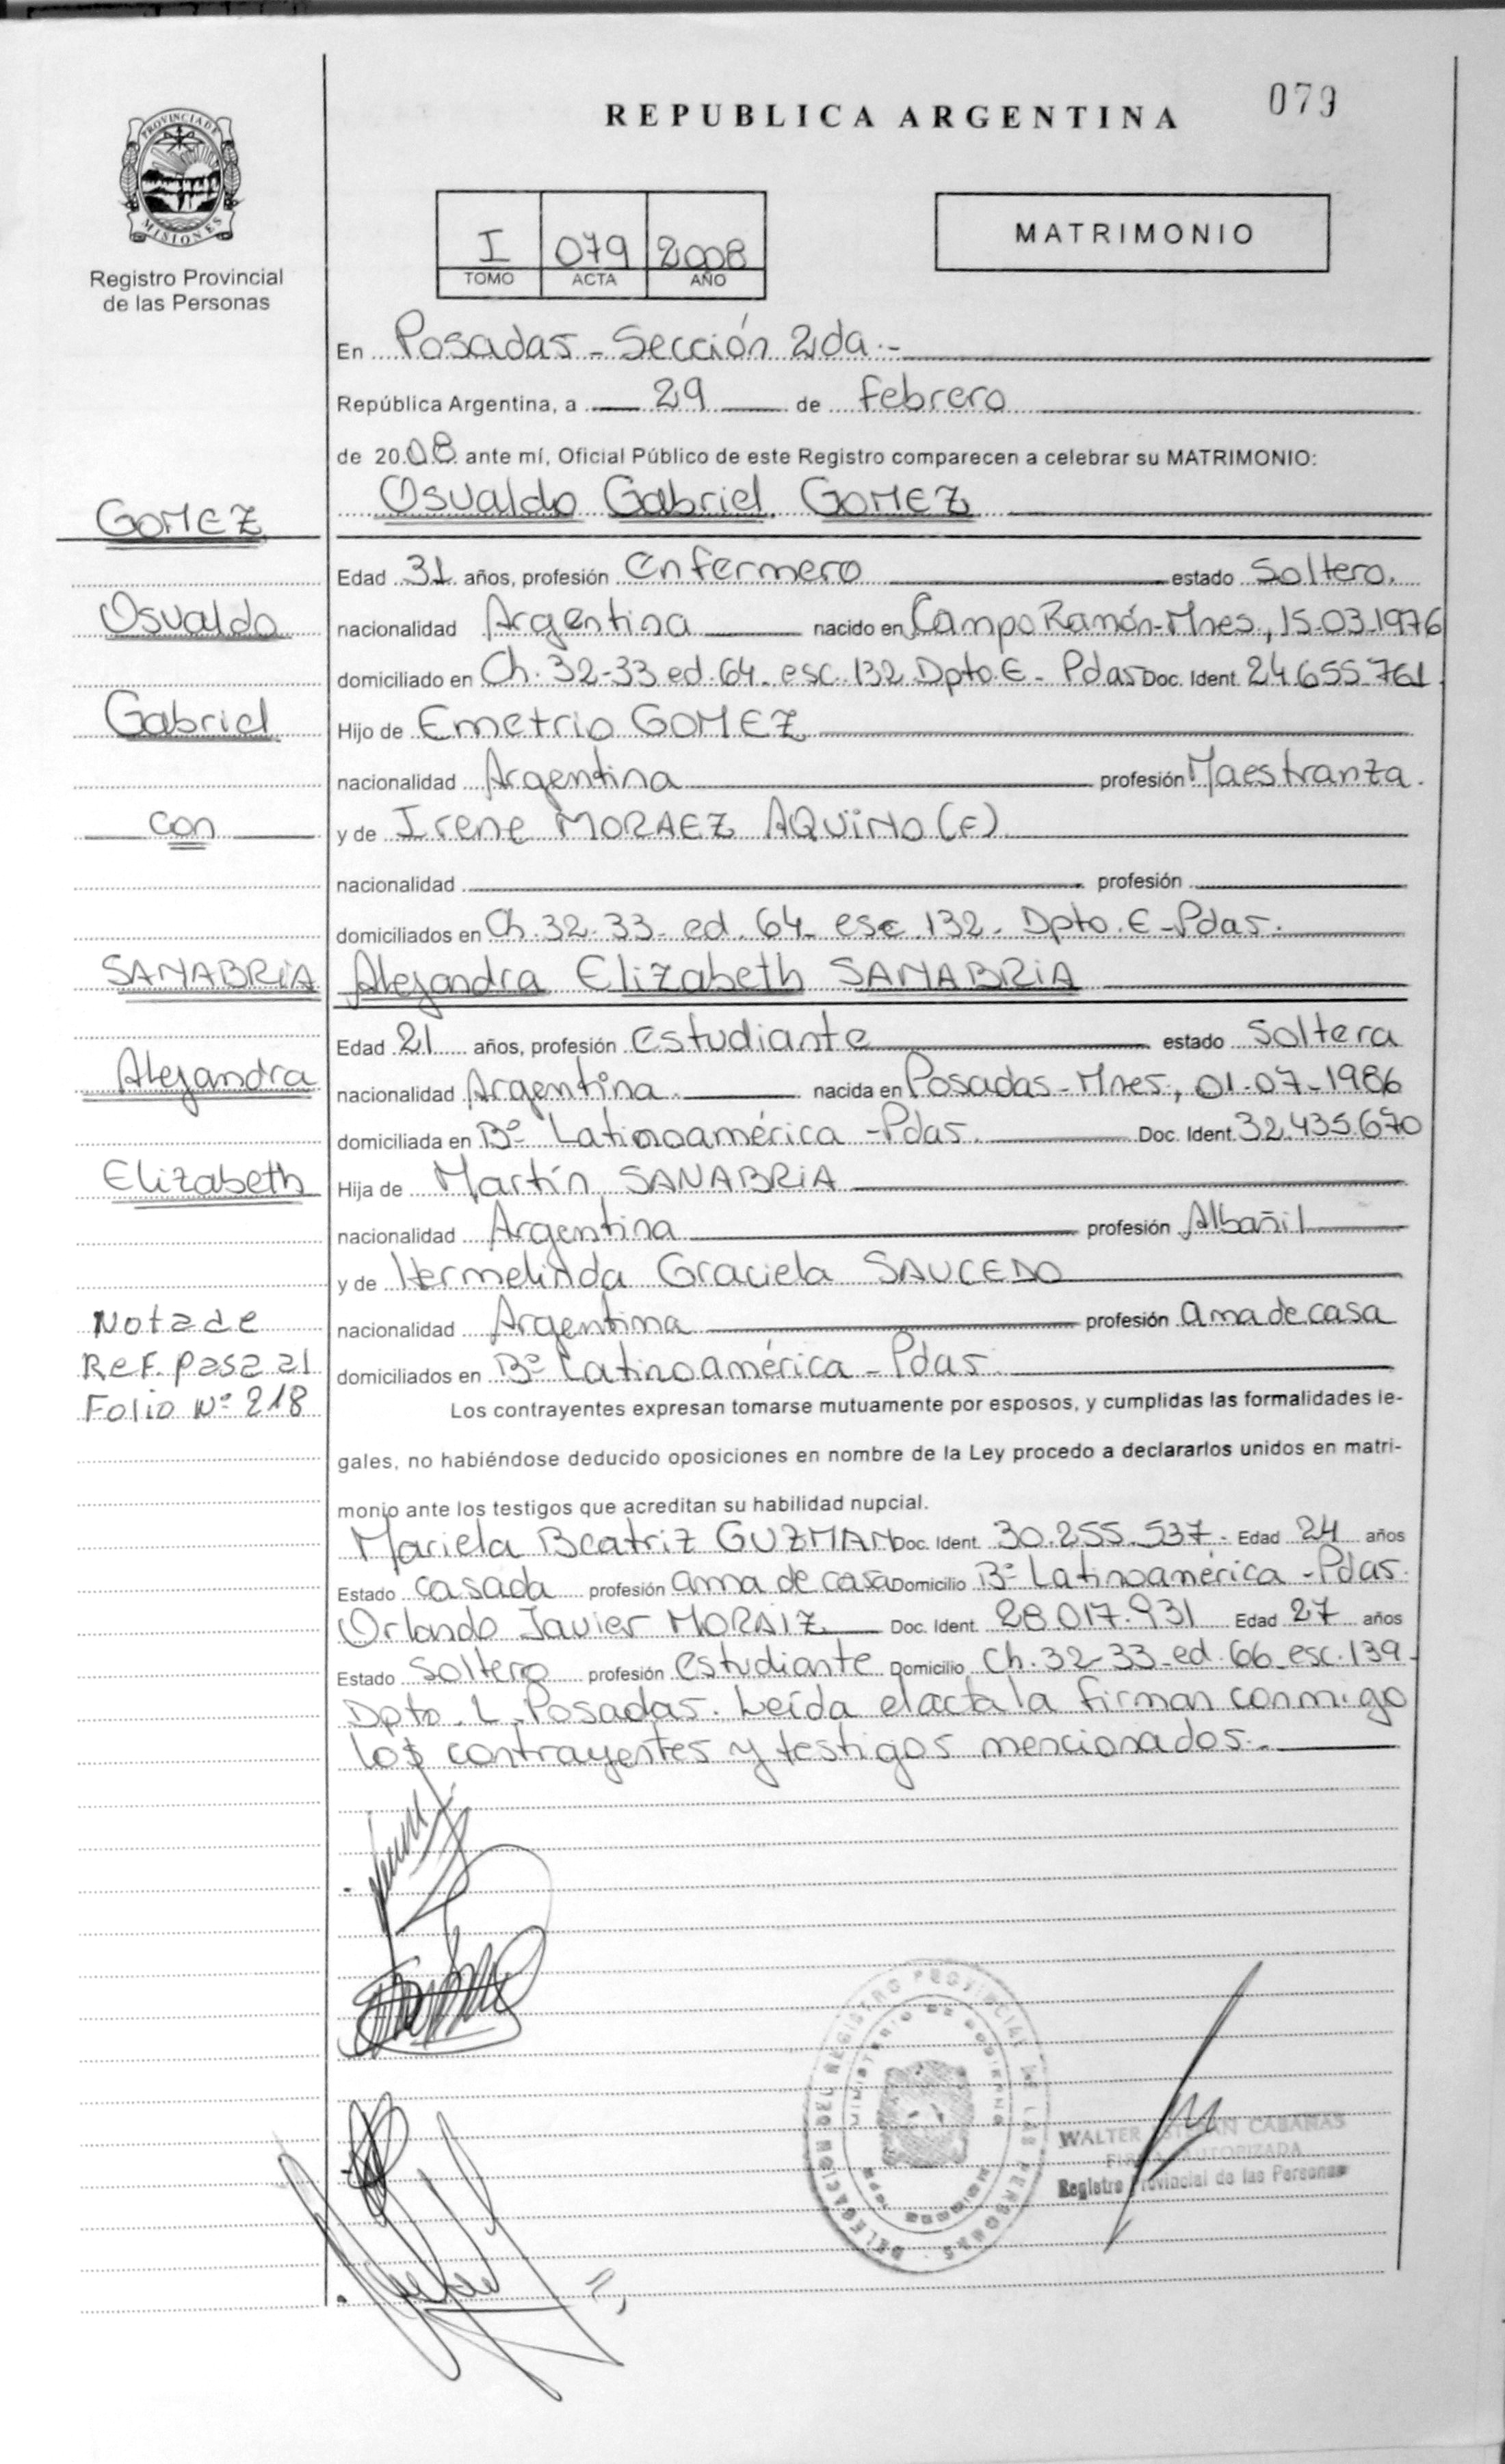 REPUBLICA ARGENTINA
079
PROVINCIA DE
MISIONES
Registro Provincial
de las Personas
I 079 2008
TOMO ACTA AÑO
MATRIMONIO
En Posadas - Sección 2da.-
República Argentina, a 29 de febrero
de 2008 ante mí, Oficial Público de este Registro comparecen a celebrar su MATRIMONIO:
GOMEZ
Osvaldo Gabriel GOMEZ
Edad 31 años, profesión Enfermero estado Soltero.
Osvaldo
nacionalidad Argentina nacido en Campo Ramón-Mnes, 15-03-1976
domiciliado en Ch. 32-33 ed. 64 - esc. 132 Dpto. E - Pdas Doc. Ident. 24.655.761
Gabriel
Hijo de Emetrio GOMEZ
nacionalidad Argentina profesión Maestranza.
con
y de Irene MORAEZ AQUINO (F)
nacionalidad profesión
domiciliados en Ch. 32-33 - ed. 64 - esc. 132 - Dpto. E - Pdas.
SANABRIA
Alejandra Elizabeth SANABRIA
Edad 21 años, profesión estudiante estado Soltera
Alejandra
nacionalidad Argentina. nacida en Posadas - Mnes, 01-07-1986
domiciliada en Bº Latinoamérica - Pdas. Doc. Ident. 32.435.670
Elizabeth
Hija de Martín SANABRIA
nacionalidad Argentina profesión Albañil
y de Hermelinda Graciela SAUCEDO
Nota de
nacionalidad Argentina profesión ama de casa
Ref. pasa al
domiciliados en Bº Latinoamérica - Pdas.
Folio Nº 218
Los contrayentes expresan tomarse mutuamente por esposos, y cumplidas las formalidades le-
gales, no habiéndose deducido oposiciones en nombre de la Ley procedo a declararlos unidos en matri-
monio ante los testigos que acreditan su habilidad nupcial.
Mariela Beatriz GUZMAN Doc. Ident. 30.255.537.- Edad 24 años
Estado casada profesión ama de casa Domicilio Bº Latinoamérica - Pdas.
Orlando Javier MORAIZ Doc. Ident. 28.017.931 Edad 27 años
Estado Soltero profesión estudiante Domicilio Ch. 32-33-ed. 66 esc. 139-
Dpto. L - Posadas. Leída el acta la firman conmigo
los contrayentes y testigos mencionados.-
DELEGACION DEL REGISTRO PROVINCIAL DE LAS PERSONAS
MINISTERIO DE GOBIERNO
WALTER CABAÑAS
FIRMA AUTORIZADA
Registro Provincial de las Personas